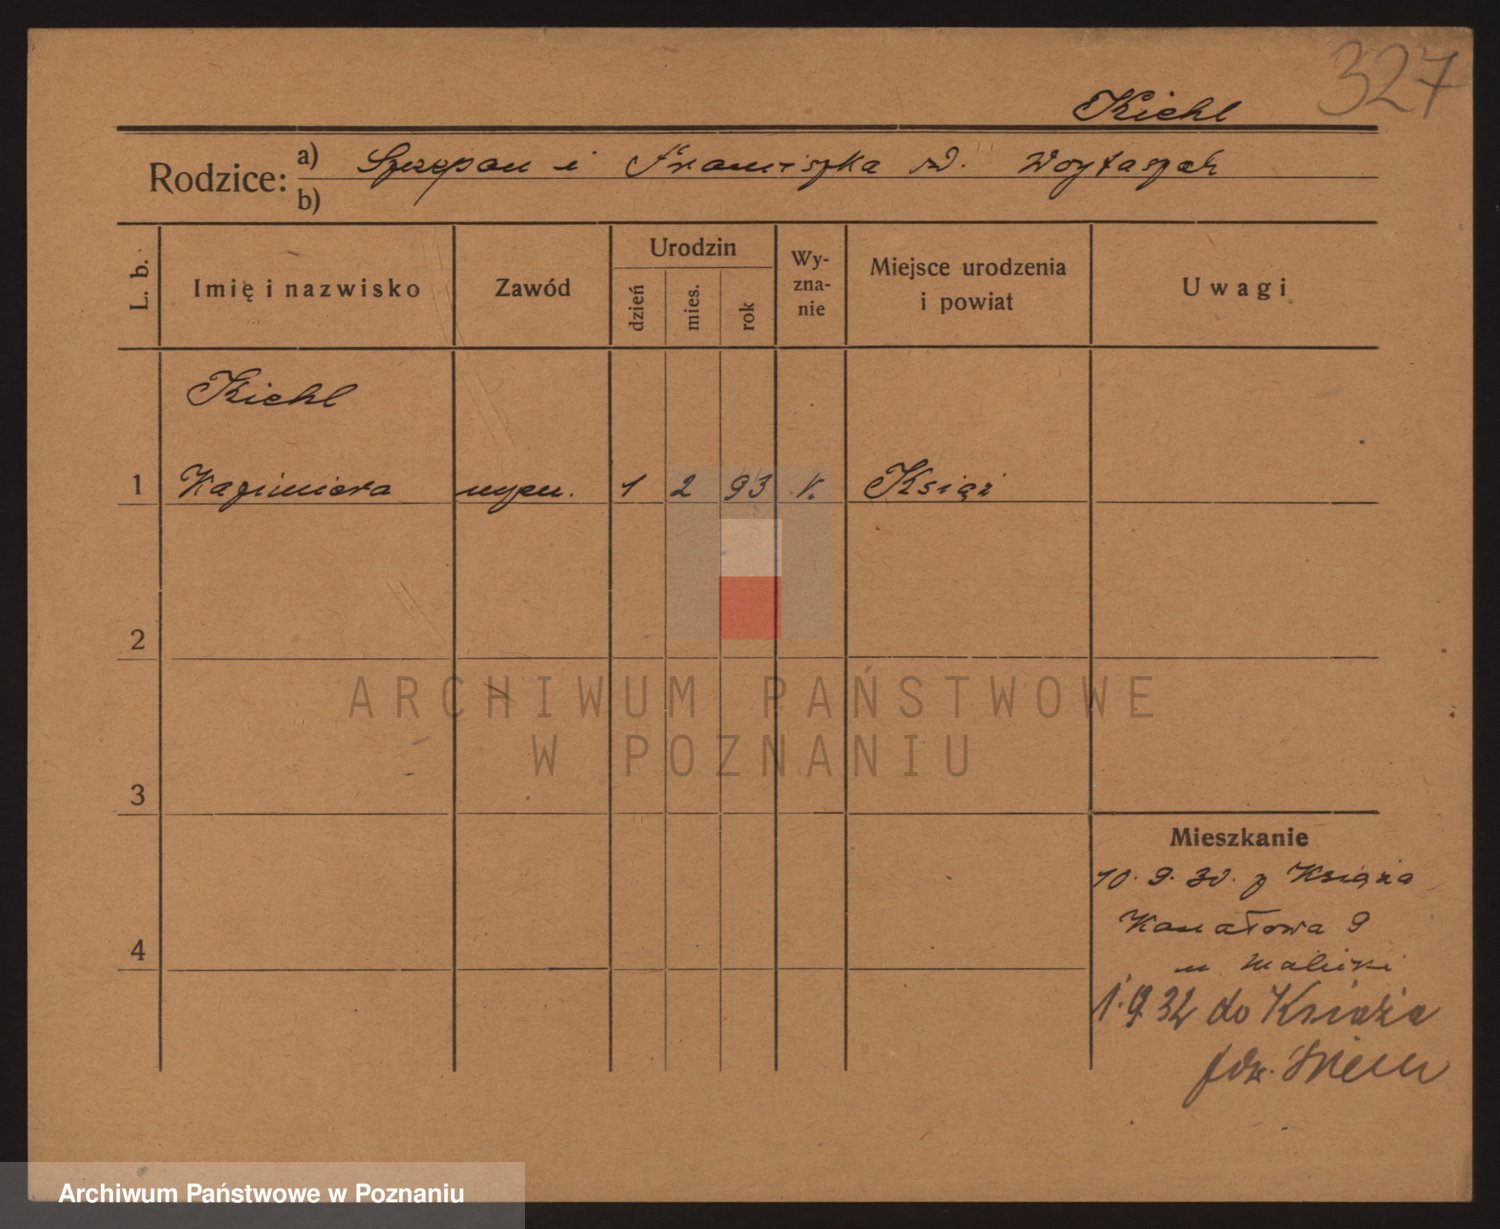 327
Kiehl
Rodzice: a) Szczepan i Franciszka d. Woytaszak
b)
L. b. Imię i nazwisko Zawód Urodzin dzień mies. rok Wy-zna-nie Miejsce urodzenia i powiat Uwagi
Kiehl
1 Kazimiera 1 2 93 k. Książ
2
ARCHIWUM PAŃSTWOWE
W POZNANIU
3
Mieszkanie
10.9.30. z Książa
Kanałowa 9
4
u Malicki
1.9.32 do Książa
Archiwum Państwowe w Poznaniu